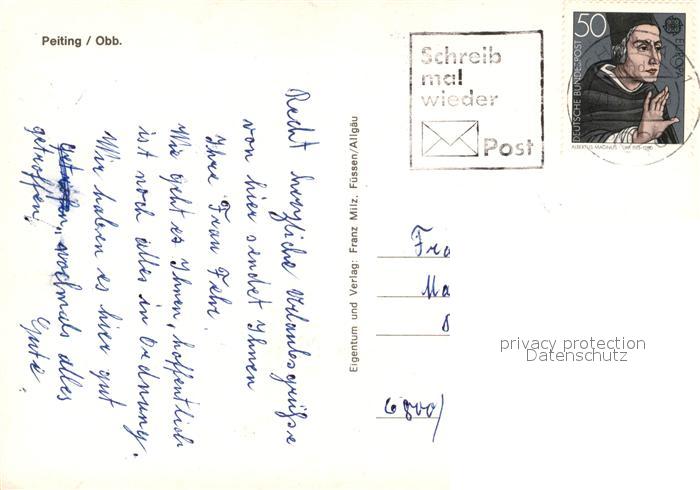 Peiting / Obb.
Recht herzliche Urlaubsgrüße
von hier sendet Ihnen
Ihre Frau Fehr.
Wie geht es Ihnen, hoffentlich
ist noch alles in Ordnung.
Wir haben es hier gut
getroffen, nochmals alles
getroffen, Gute.
Eigentum und Verlag: Franz Milz, Füssen/Allgäu
Schreib
mal
wieder
Post
50
DEUTSCHE BUNDESPOST
EUROPA
ALBERTUS MAGNUS
Fra
Ma
6800/
privacy protection
Datenschutz